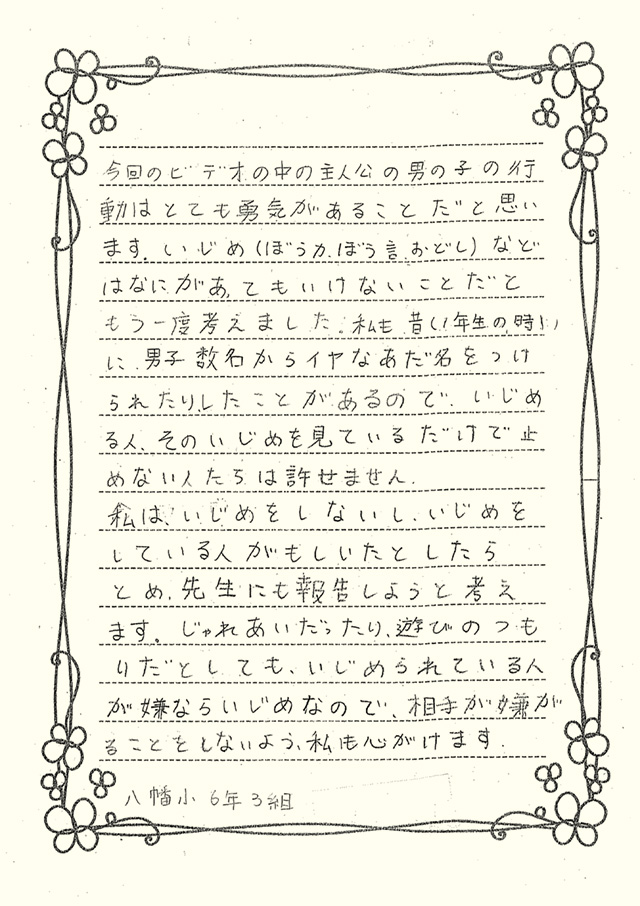 今回のビデオの中の主人公の男の子の行
動はとても勇気があることだと思い
ます。いじめ(ぼう力、ぼう言、おどし)など
はなにがあってもいけないことだと
もう一度考えました。私も昔(1年生の時)
に、男子数名からイヤなあだ名をつけ
られたりしたことがあるので、いじめ
る人、そのいじめを見ているだけで止
めない人たちは許せません。
私は、いじめをしないし、いじめを
している人がもしいたとしたら
とめ、先生にも報告しようと考え
ます。じゃれあいだったり、遊びのつも
りだとしても、いじめられている人
が嫌ならいじめなので、相手が嫌が
ることをしないよう、私も心がけます。
八幡小 6年3組